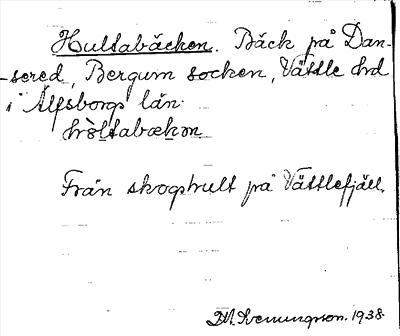 Hultabäcken. Bäck på Dan-
-sered, Bergum socken, Vättle hd
i Älfsborgs län.
hòltabækən
Från skogshult på Vättlefjäll.
1938